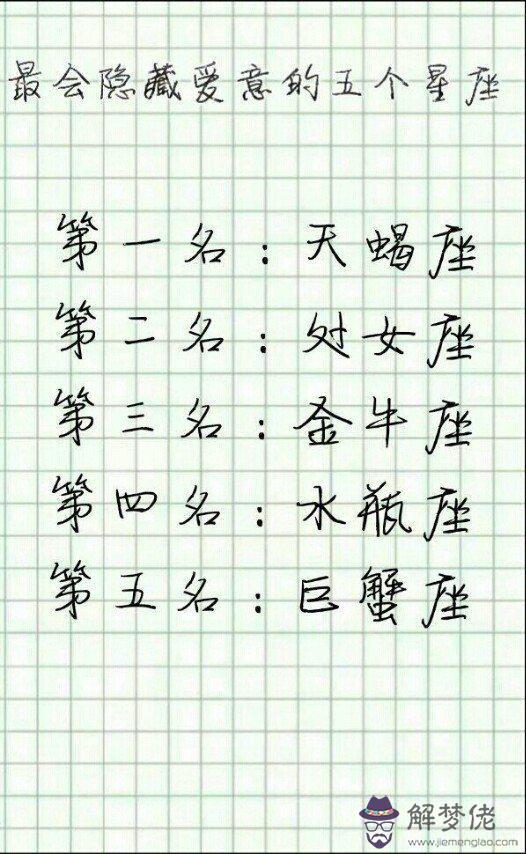 最会隐藏爱意的五个星座
第一名：天蝎座
第二名：处女座
第三名：金牛座
第四名：水瓶座
第五名：巨蟹座
解梦佬
www.jiemenglao.com